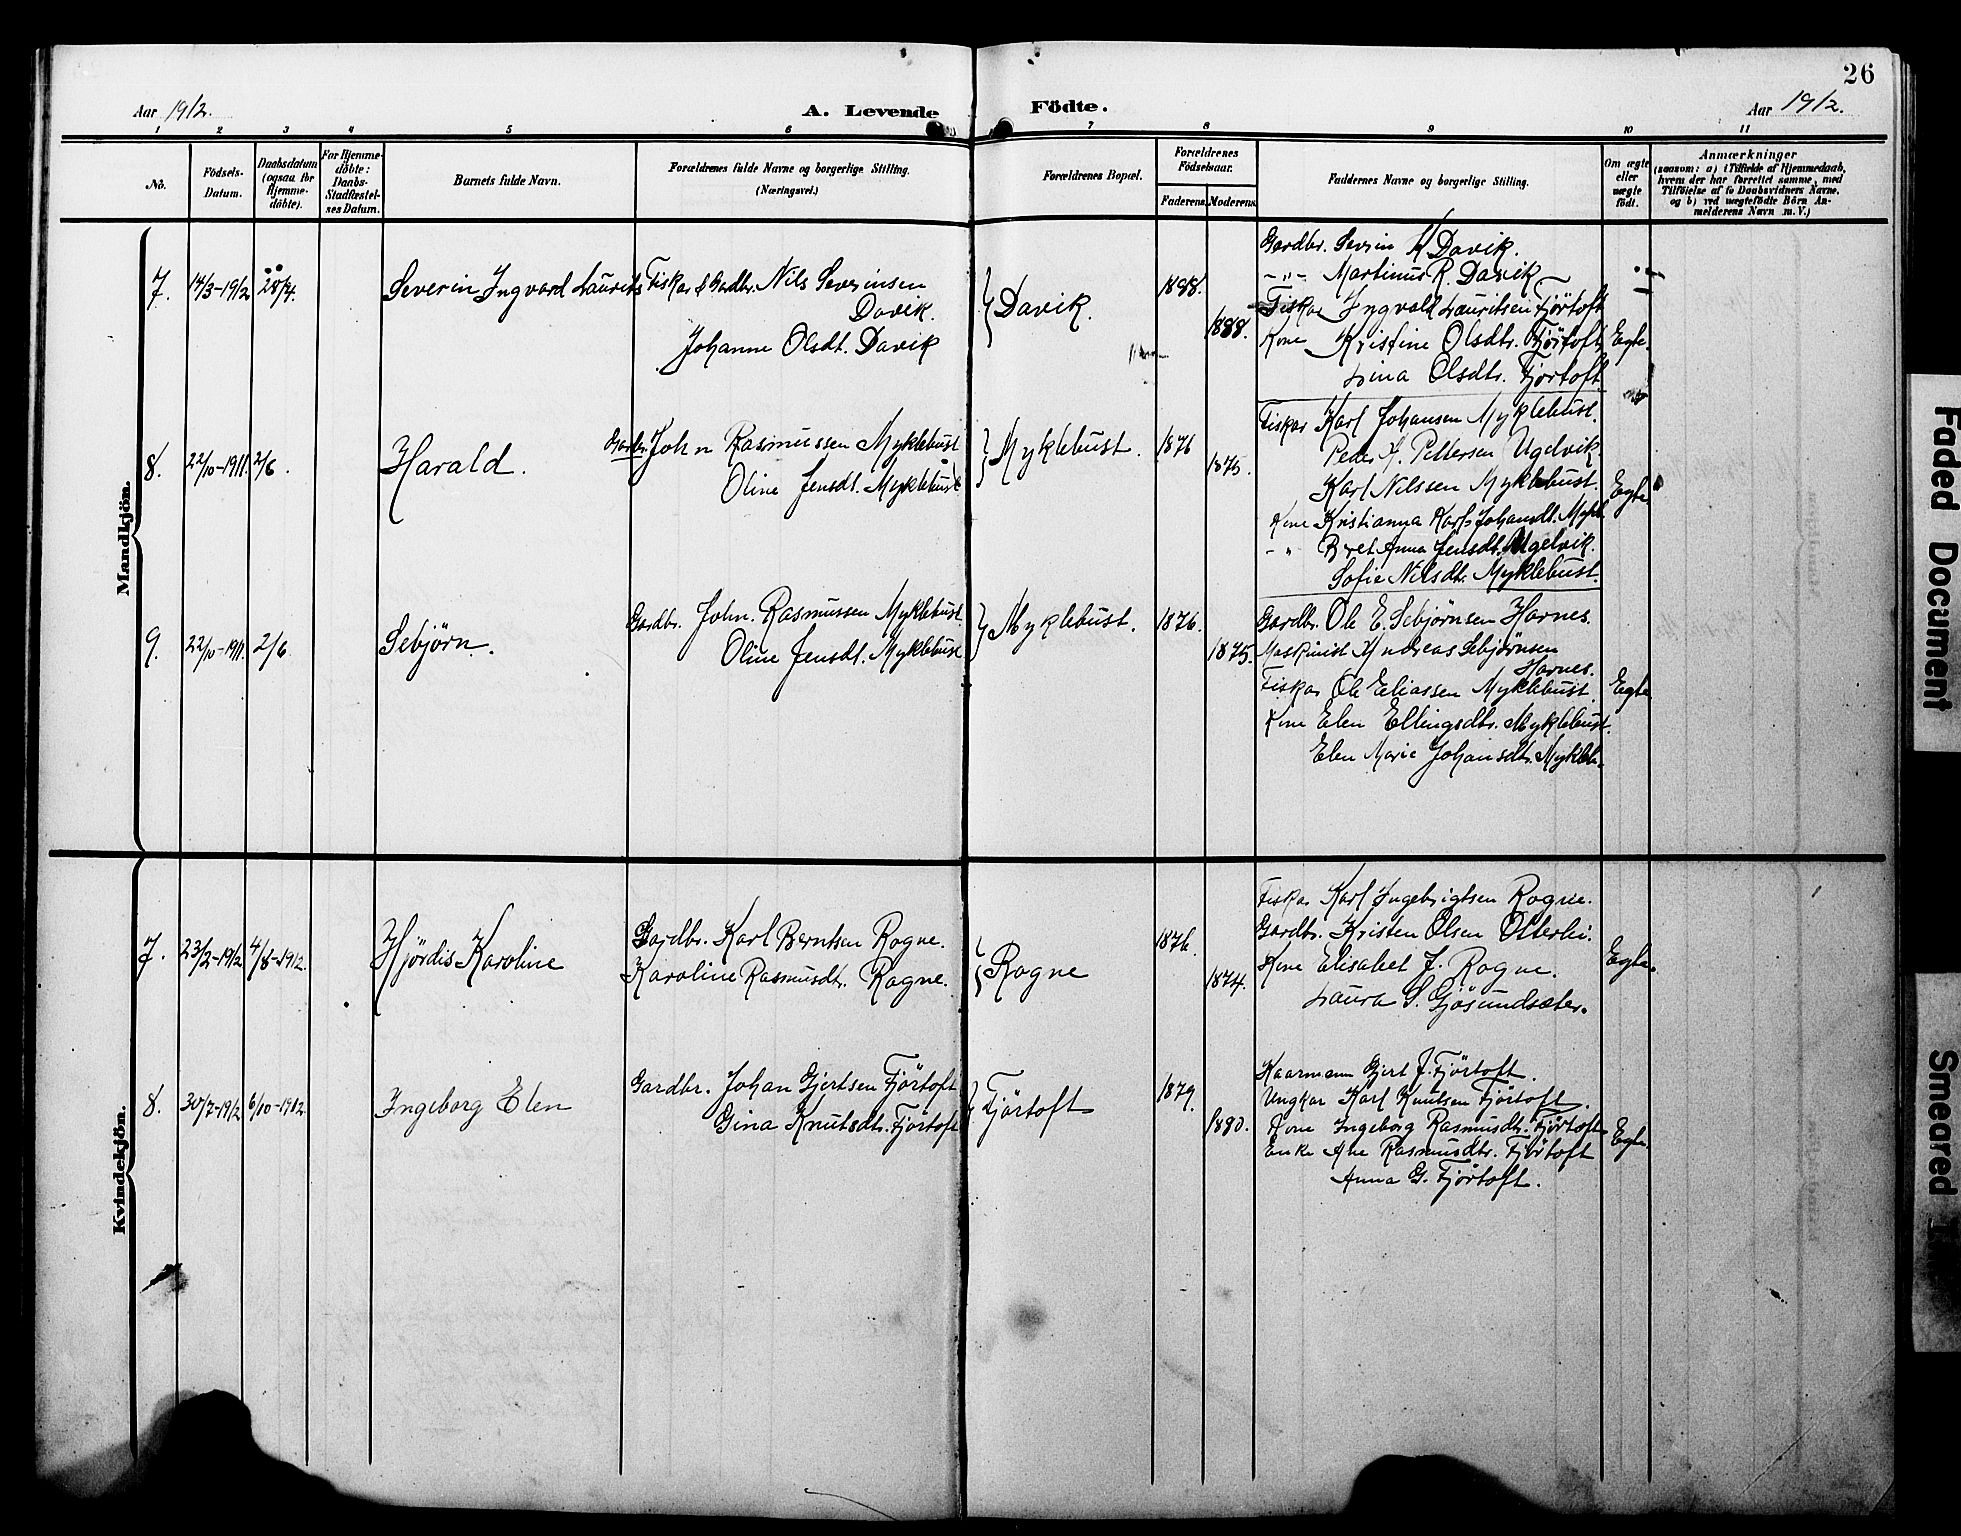 26
Aar 1912.
A. Levende Födte.
Aar 1912.
1 2 3 4 5 6 7 8 9 10 11
No.
Födsels-
Datum.
Daabsdatum
(ogsaa for
Hjemme-
döbte).
For Hjemme-
döbte:
Daabs-
Stadfæstel-
ses Datum.
Barnets fulde Navn.
Forældrenes fulde Navne og borgerlige Stilling.
(Næringsvei.)
Forældrenes Bopæl.
Forældrenes
Födselsaar.
Faderens. Moderens.
Faddernes Navne og borgerlige Stilling.
Om ægte
eller
uægte
födt.
Anmærkninger
(saasom: a) i Tilfælde af Hjemmedaab,
hvem der har forrettet samme, med
Tilföielse af to Daabsvidners Navne,
og b) ved uægtefödte Börn An-
melderens Navn m. V.)
Mandkjön.
7. 14/3-1912 28/4.
Severin Ingvard Laurits
Fiskar & Gardbr. Nils Severinsen
Davik.
Johanne Olsdt. Davik
Davik.
1888.
1888.
Gardbr. Sevrin M Davik.
-"- Martinus R. Davik
Fiskar Ingvald Lauritsen Fjörtoft
Kone Kristine Olsdtr. Fjörtoft
Lina Olsdtr. Fjörtoft.
Egte.
8. 22/10-1911. 2/6.
Harald.
Gardbr. John Rasmussen Myklebust
Oline Jensdt. Myklebust
Myklebust.
1876
1875.
Fiskar Karl Johansen Myklebust.
Peder K. Pettersen Ugelvik.
Karl Nilssen Myklebust.
Kone Kristianna Karl-Johansdt. Mykl.
-" Beret Anna Jensdt. Ugelvik.
Sofie Nilsdt. Myklebust.
Egte.
9. 22/10-1911. 2/6
Sebjörn.
Gardbr. John. Rasmussen Myklebust.
Oline Jensdt. Myklebust
Myklebust.
1876.
1875.
Gardbr. Ole E. Sebjörnsen Harnes.
Maskinist Andreas Sebjörnsen
Harnes.
Fiskar Ole Eeliassen Myklebust
Kone Elen Ellingsdtr. Myklebust.
Elen Marie Johansdtr. Mykleb.
Egte
Kvindekjön.
7. 23/2-1912 4/8-1912.
Hjördis Karoline
Gardbr. Karl Berntsen Rogne.
Karoline Rasmusdtr. Rogne.
Rogne
1876.
1874.
Fiskar Karl Ingebrigtsen Rogne.
Gardbr. Kristen Olsen Otterlei.
Kone Elisabet J. Rogne.
Laura S. Gjösundsæter.
Egte.
8. 30/7-1912 6/10-1912.
Ingeborg Elen
Gardbr. Johan Gjertsen Fjörtoft
Gina Knutsdtr. Fjörtoft
Fjörtoft
1879.
1880.
Kaarmann Gjert J. Fjörtoft.
Ungkar Karl Knutsen Fjörtoft.
Kone Ingeborg Rasmusdtr. Fjörtoft
Enke Ane Rasmusdtr. Fjörtoft
Anna G. Fjörtoft.
Egte.
Faded Document
Smeared